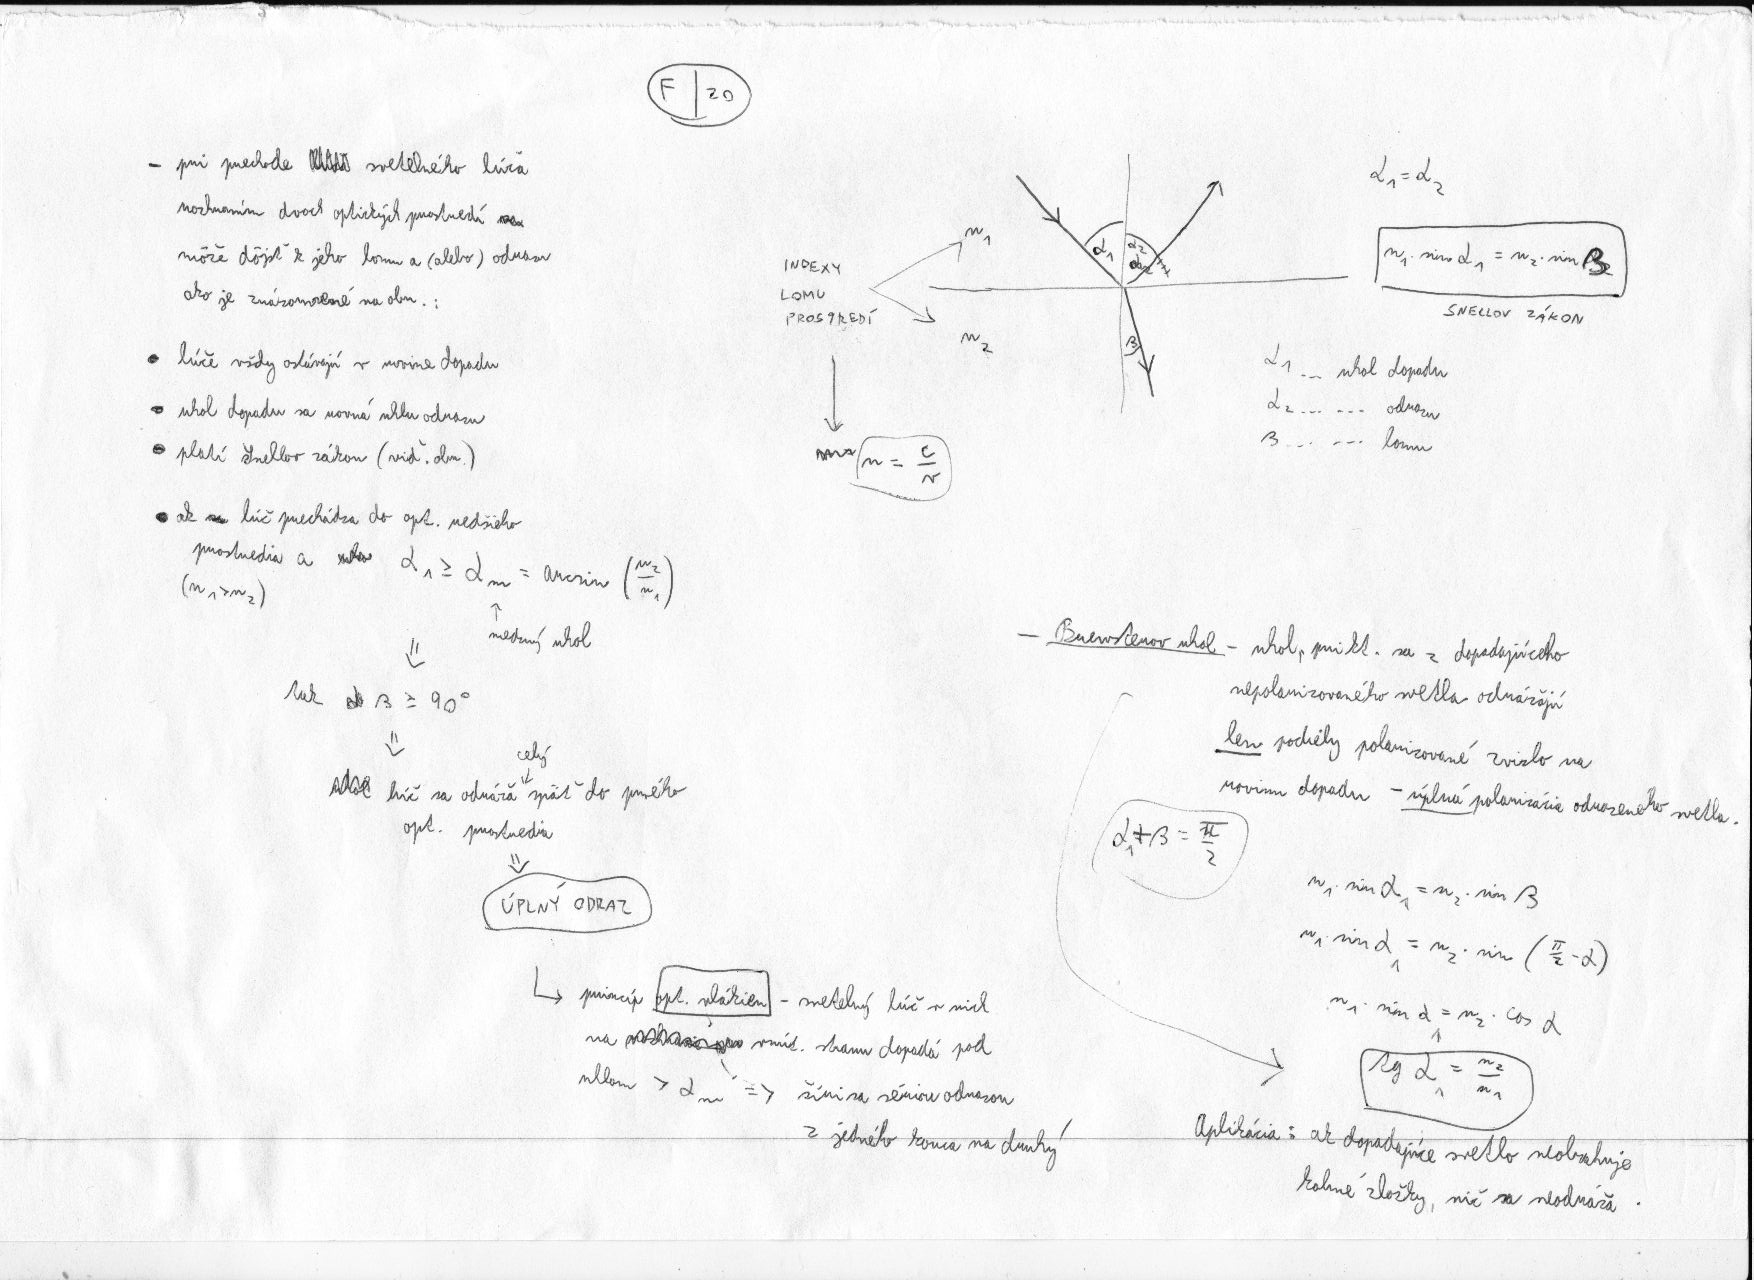 F | 20
- pri prechode svetelného lúča
rozhraním dvoch optických prostredí
môže dôjsť k jeho lomu a (alebo) odrazu
ako je znázornené na obr.:
• lúče vždy ostávajú v rovine dopadu
• uhol dopadu sa rovná uhlu odrazu
• platí Snellov zákon (viď. obr.)
• ak lúč prechádza do opt. redšieho
prostredia a α₁ ≥ αₘ = arcsin (n₂/n₁)
(n₁>n₂)
↑
medzný uhol
⇓
tak β ≥ 90°
⇓
celý
lúč sa odráža späť do prvého
opt. prostredia
⇓
ÚPLNÝ ODRAZ
↳ princíp opt. vlákien - svetelný lúč v nich
na vnút. stranu dopadá pod
uhlom > αₘ => šíri sa sériou odrazov
z jedného konca na druhý
INDEXY
LOMU
PROSTREDÍ
n₁
n₂
n = c/v
α₁
α₂
β
α₁ = α₂
n₁. sin α₁ = n₂. sin β
SNELLOV ZÁKON
α₁ ... uhol dopadu
α₂ ... ... odrazu
β ... ... lomu
- Brewsterov uhol - uhol, pri kt. sa z dopadajúceho
nepolarizovaného svetla odrážajú
len podiely polarizované zvislo na
rovinu dopadu - úplná polarizácia odrazeného svetla.
α₁+β = π/2
n₁. sin α₁ = n₂. sin β
n₁. sin α₁ = n₂. sin (π/2 - α)
n₁. sin α₁ = n₂. cos α
tg α₁ = n₂/n₁
Aplikácia: ak dopadajúce svetlo neobsahuje
kolmé zložky, nič sa neodráža.